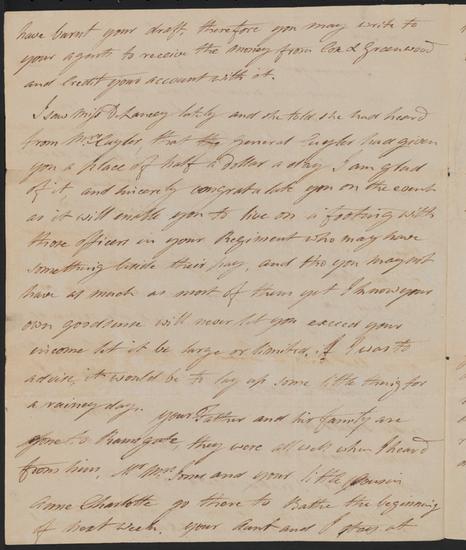 have burnt your draft, therefore you may write to
your agents to receive the money from Cox & Greenwood
and Credit your account with it.
I saw Miss D. Lancey lately and she told she had heard
from Mrs. Cuyler, that the General Cuyler had given
you a place of half a Dollar a day I am glad
of it and sincerely congratulate you on the event
as it will enable you to live on a footing with
those officers in your Regiment who may have
something beside their pay, and tho you may not
have as much as most of them yet I know your
own good sense will never let you exceed your
income let it be large or limited, If I was to
advise, it would be to lay up some little thing for
a rainey day. your Father and his family are
gone to Ramsgate, they were all well when I heard
from him, Mr Mrs and your little Cousin
Anne Charlotte go there to Bathe the beginning
of next week. your Aunt and I stay at